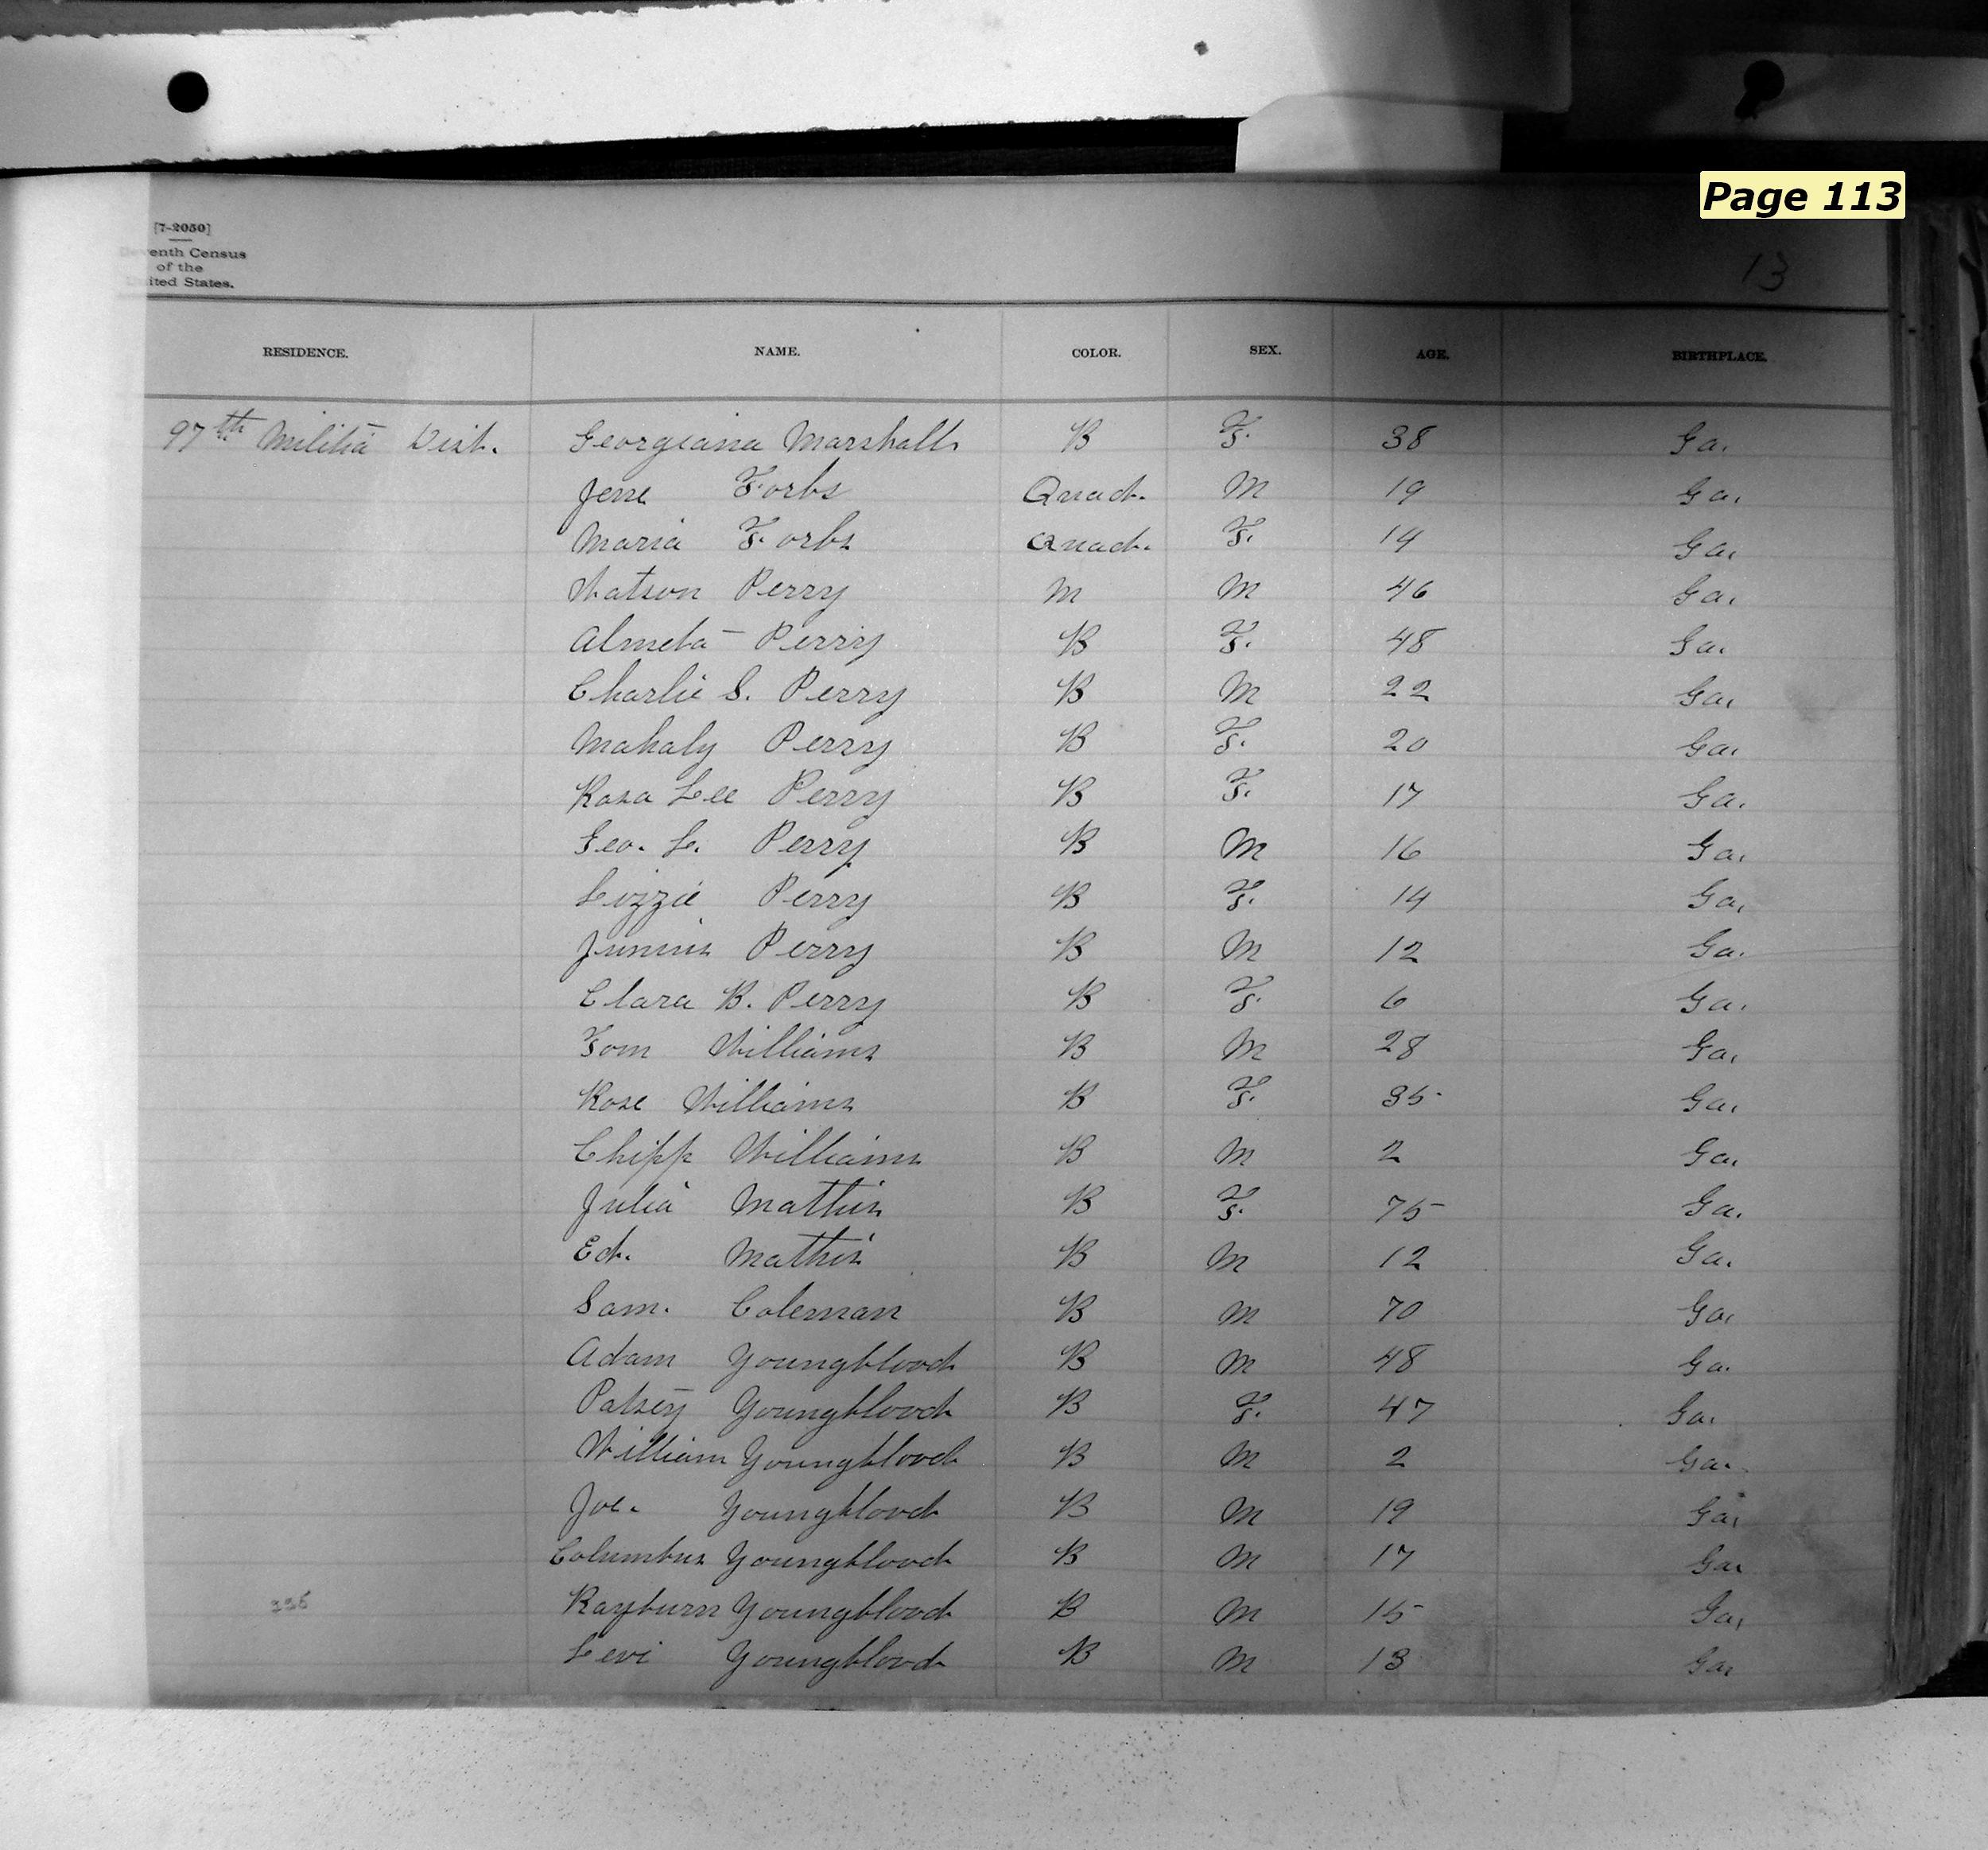 Page 113
[7-2050]
venth Census
of the
ited States.
13
RESIDENCE. NAME. COLOR. SEX. AGE. BIRTHPLACE.
97th Militia Dist. Georgiana Marshall B F. 38 Ga.
Jesse Forbs Quad. M 19 Ga.
Maria Forbs Quad. F. 14 Ga.
Watson Perry M M 46 Ga.
Almeta Perry B F. 48 Ga.
Charlie S. Perry B M 22 Ga.
Mahaly Perry B F. 20 Ga.
Rosa Lee Perry B F. 17 Ga.
Geo. L. Perry B M 16 Ga.
Lizzie Perry B F. 14 Ga.
Junius Perry B M 12 Ga.
Clara B. Perry B F. 6 Ga.
Tom Williams B M 28 Ga.
Rose Williams B F. 35 Ga.
Chipp Williams B M 2 Ga.
Julia Mathis B F. 75 Ga.
Ed. Mathis B M 12 Ga.
Sam. Coleman B M 70 Ga.
Adam Youngblood B M 48 Ga.
Patsey Youngblood B F. 47 Ga.
William Youngblood B M 2 Ga.
Joe. Youngblood B M 19 Ga.
Columbus Youngblood B M 17 Ga.
Rayburn Youngblood B M 15 Ga.
Levi Youngblood B M 13 Ga.